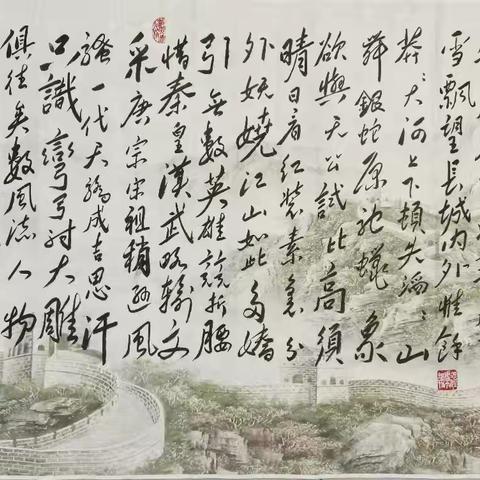 雪飄望長城内外惟餘
莽莽大河上下頓失滔滔山
舞銀蛇原馳蠟象
欲與天公試比高須
晴日看紅裝素裹分
外妖嬈江山如此多嬌
引無數英雄競折腰
惜秦皇漢武略輸文
采唐宗宋祖稍遜風
騷一代天驕成吉思汗
只識彎弓射大雕
俱往矣數風流人物